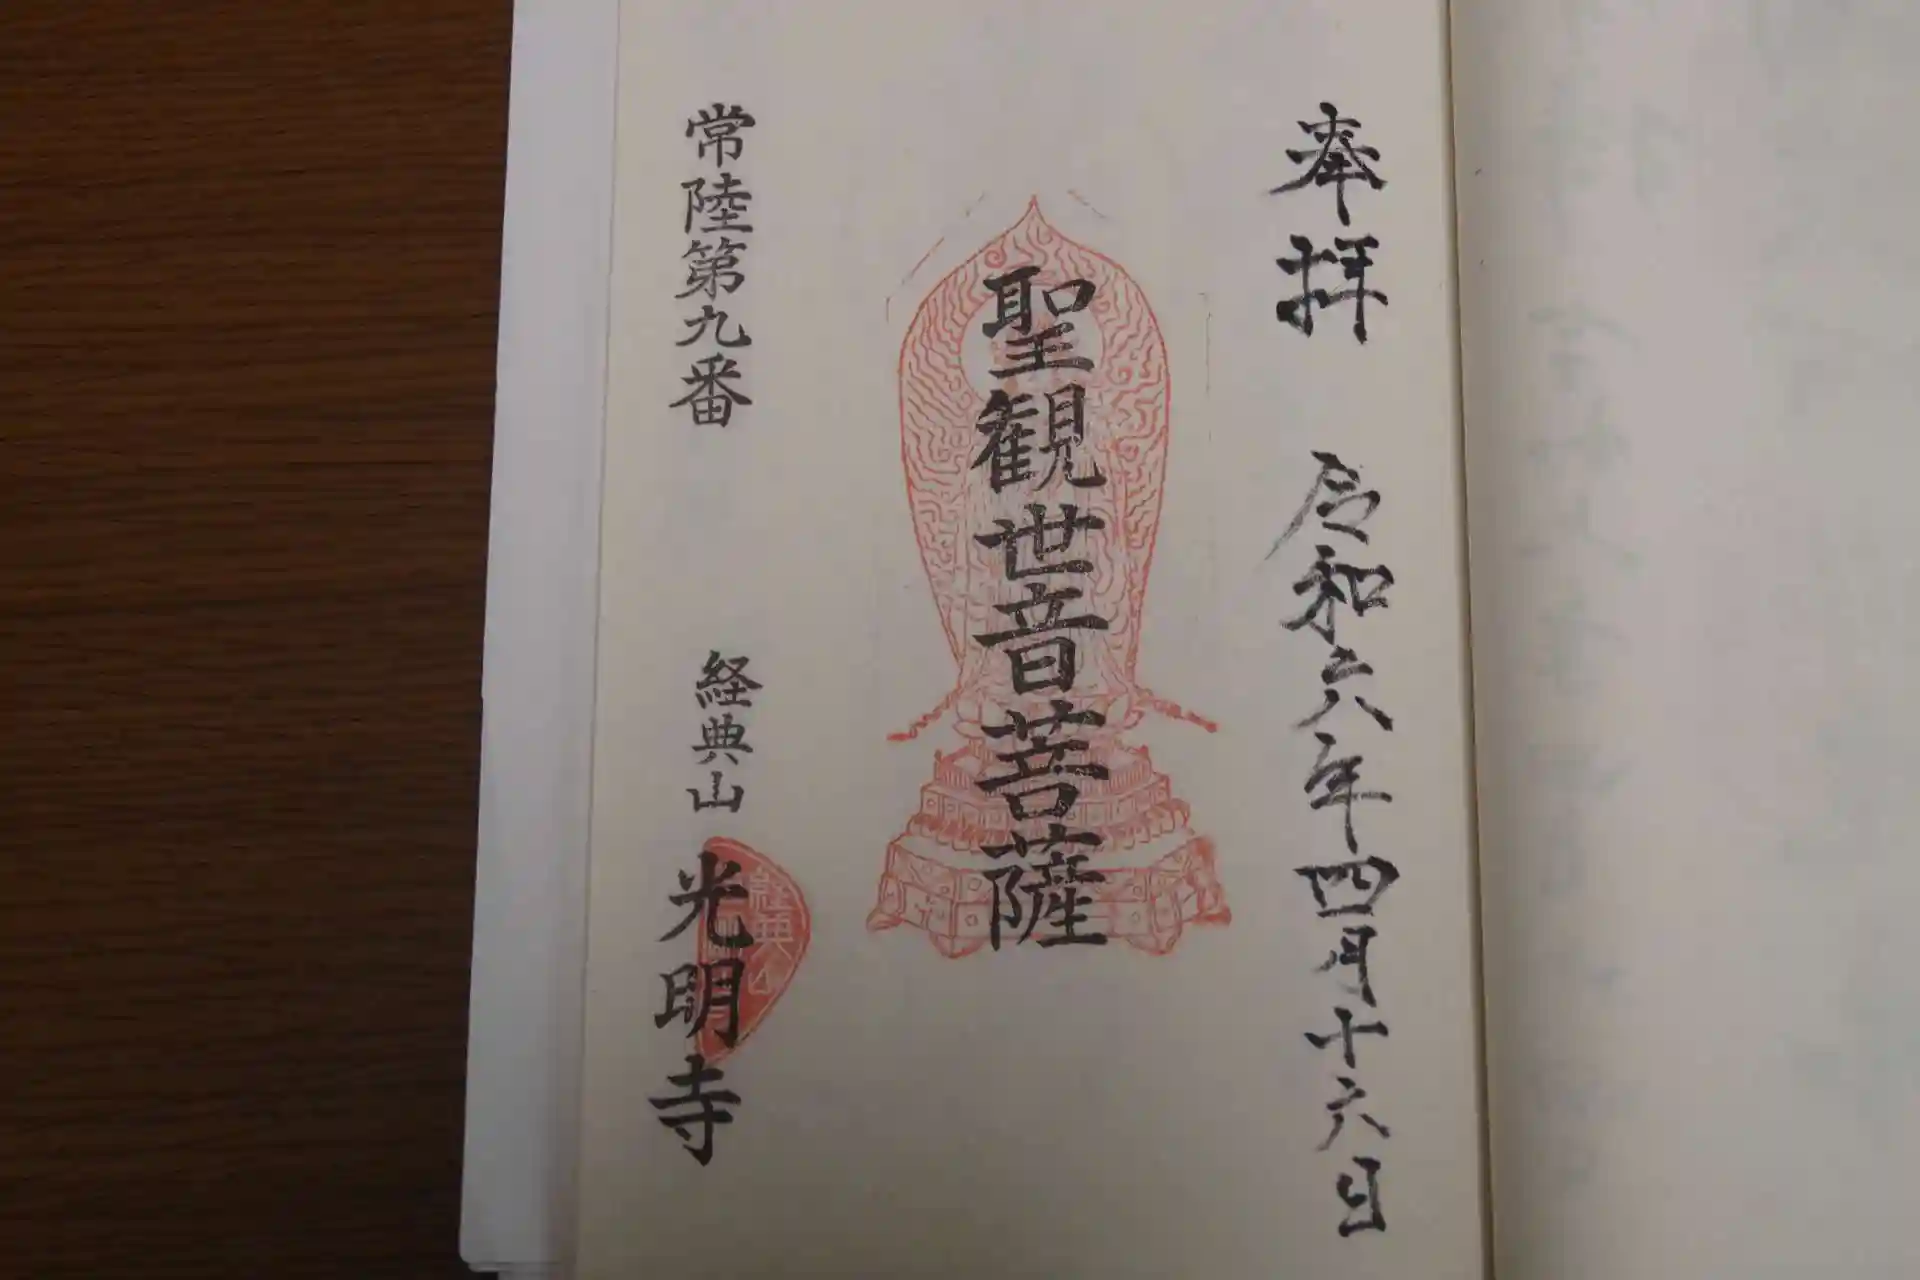 奉拝 令和六年四月十六日
聖観世音菩薩
常陸第九番 経典山 光明寺
経典山